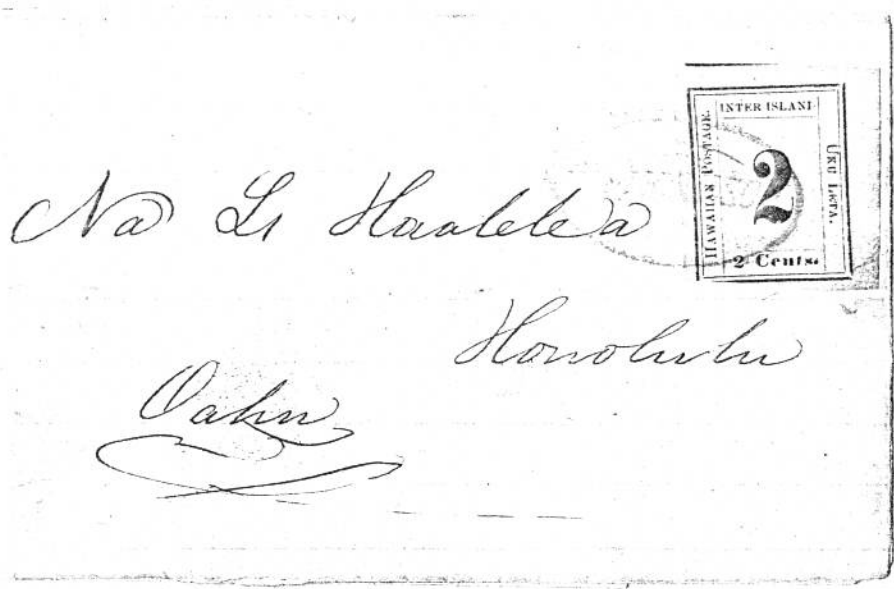 INTER ISLAND
HAWAIIAN POSTAGE.
UKU LETA.
2
2 Cents.
Na L Haalelea
Honolulu
Oahu